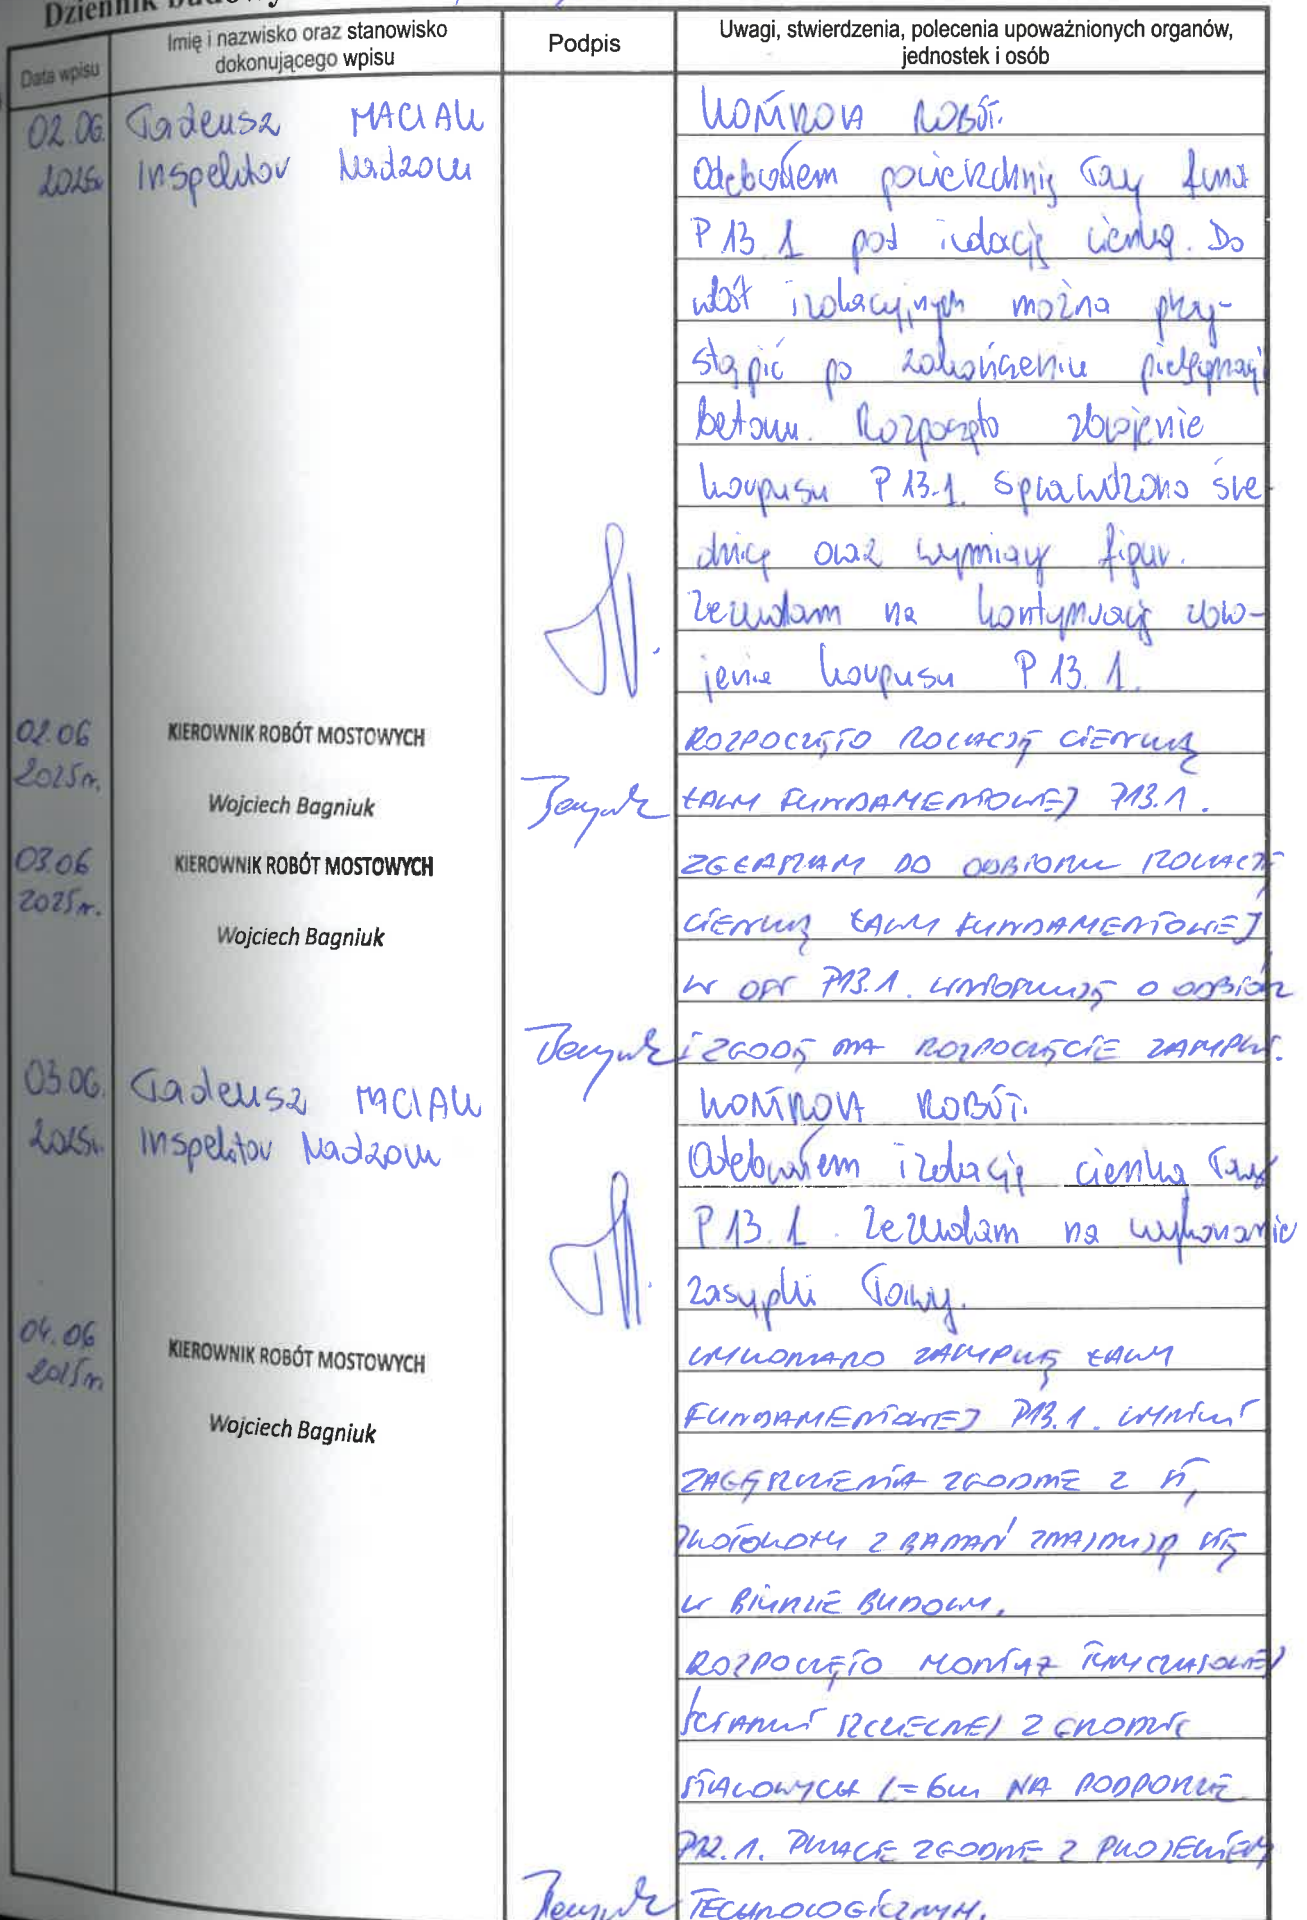 Dziennik budowy
Data wpisu
Imię i nazwisko oraz stanowisko dokonującego wpisu
Podpis
Uwagi, stwierdzenia, polecenia upoważnionych organów, jednostek i osób
02.06. 2025r.
Tadeusz MACIAK
Inspektor Nadzoru
KONTROLA ROBÓT.
Odebrałem powierzchnię ławy fund
P 13.1 pod izolację cienką. Do
robót izolacyjnych można przy-
stąpić po zakończeniu pielęgnacji
betonu. Rozpoczęto zbrojenie
korpusu P 13.1. Sprawdzono śre-
dnicę oraz wymiary figur.
Zezwalam na kontynuację zbro-
jenie korpusu P 13.1.
02.06 2025r.
KIEROWNIK ROBÓT MOSTOWYCH
Wojciech Bagniuk
ROZPOCZĘTO IZOLACJĘ CIENKĄ
ŁAWY FUNDAMENTOWEJ P13.1.
03.06 2025r.
KIEROWNIK ROBÓT MOSTOWYCH
Wojciech Bagniuk
ZGŁASZAM DO ODBIORU IZOLACJĘ
CIENKĄ ŁAWY FUNDAMENTOWEJ
W OPR P13.1. WNIOSKUJĘ O ODBIÓR
I ZGODĘ NA ROZPOCZĘCIE ZASYPKI.
03.06. 2025r.
Tadeusz MACIAK
Inspektor Nadzoru
KONTROLA ROBÓT.
Odebrałem izolację cienką ławy
P 13.1. Zezwalam na wykonanie
zasypki ławy.
04.06 2025r.
KIEROWNIK ROBÓT MOSTOWYCH
Wojciech Bagniuk
WYKONANO ZASYPKĘ ŁAWY
FUNDAMENTOWEJ P13.1. WYNIKI
ZAGĘSZCZENIA ZGODNE Z ST,
PROTOKOŁY Z BADAŃ ZNAJDUJĄ SIĘ
W BIURZE BUDOWY.
ROZPOCZĘTO MONTAŻ TYMCZASOWEJ
ŚCIANKI SZCZELNEJ Z GRODZIC
STALOWYCH L=6m NA PODPORZE
P12.1. PRACE ZGODNE Z PROJEKTEM
TECHNOLOGICZNYM.